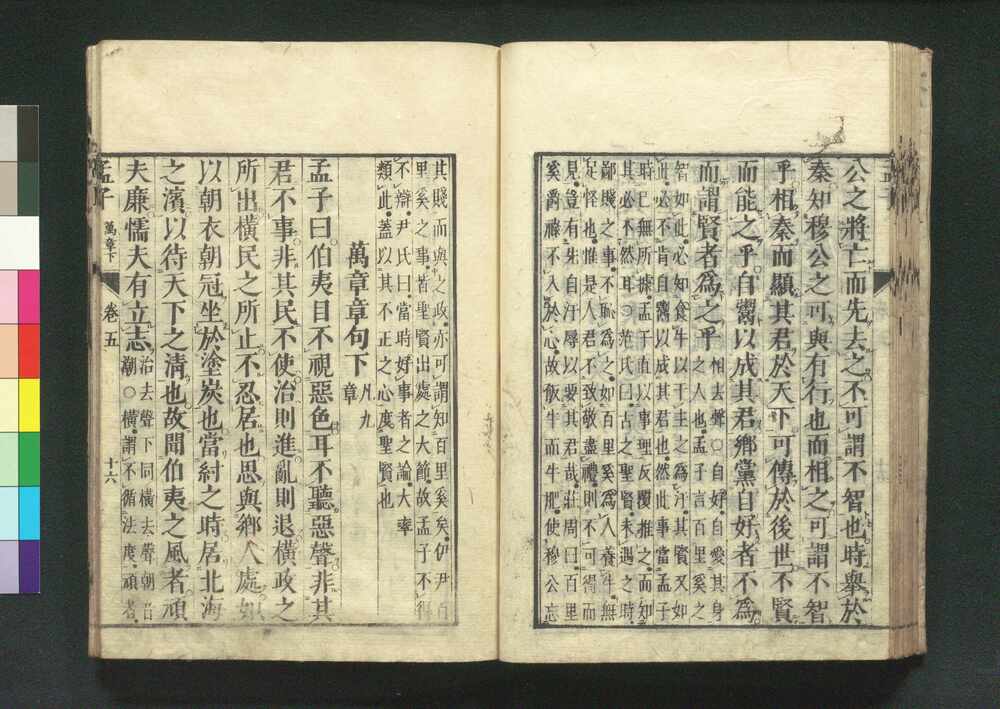 公之將亡而先去之不可謂不智也時舉於
秦知穆公之可與有行也而相之可謂不智
乎相秦而顯其君於天下可傳於後世不賢
而能之乎自鬻以成其君鄉黨自好者不爲
而謂賢者爲之乎
相去聲○自好自愛其身
之人也孟子言百里奚之
智如此必知食牛以干主之爲汙其賢又如
此必不肯自鬻以成其君也然此事當孟子
時已無所據孟子直以事理反覆推之而知
其必不然耳○范氏曰古之聖賢未遇之時
鄙賤之事不恥爲之如百里奚爲人養牛無
足怪也惟是人君不致敬盡禮則不可得而
見豈有先自汙辱以要其君哉莊周曰百里
奚爵祿不入於心故飯牛而牛肥使穆公忘
其賤而與之政亦可謂知百里奚矣伊尹百
里奚之事皆聖賢出處之大節故孟子不得
不辯尹氏曰當時好事者之論大率
類此蓋以其不正之心度聖賢也
萬章章句下
凡九
章
孟子曰伯夷目不視惡色耳不聽惡聲非其
君不事非其民不使治則進亂則退橫政之
所出橫民之所止不忍居也思與鄉人處如
以朝衣朝冠坐於塗炭也當紂之時居北海
之濱以待天下之清也故聞伯夷之風者頑
夫廉懦夫有立志
治去聲下同橫去聲朝音
潮○橫謂不循法度頑者
孟子
萬章下
卷五
十六